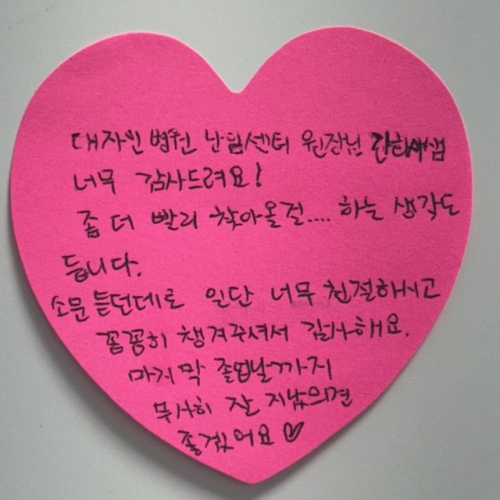 대자인 병원 난임센터 원장님 간호사쌤
너무 감사드려요!
좀 더 빨리 찾아올걸.... 하는 생각도
듭니다.
소문 듣던데로 일단 너무 친절해시고
꼼꼼히 챙겨주셔서 감사해요.
마지막 졸업날까지
무사히 잘 지냈으면
좋겠어요♡